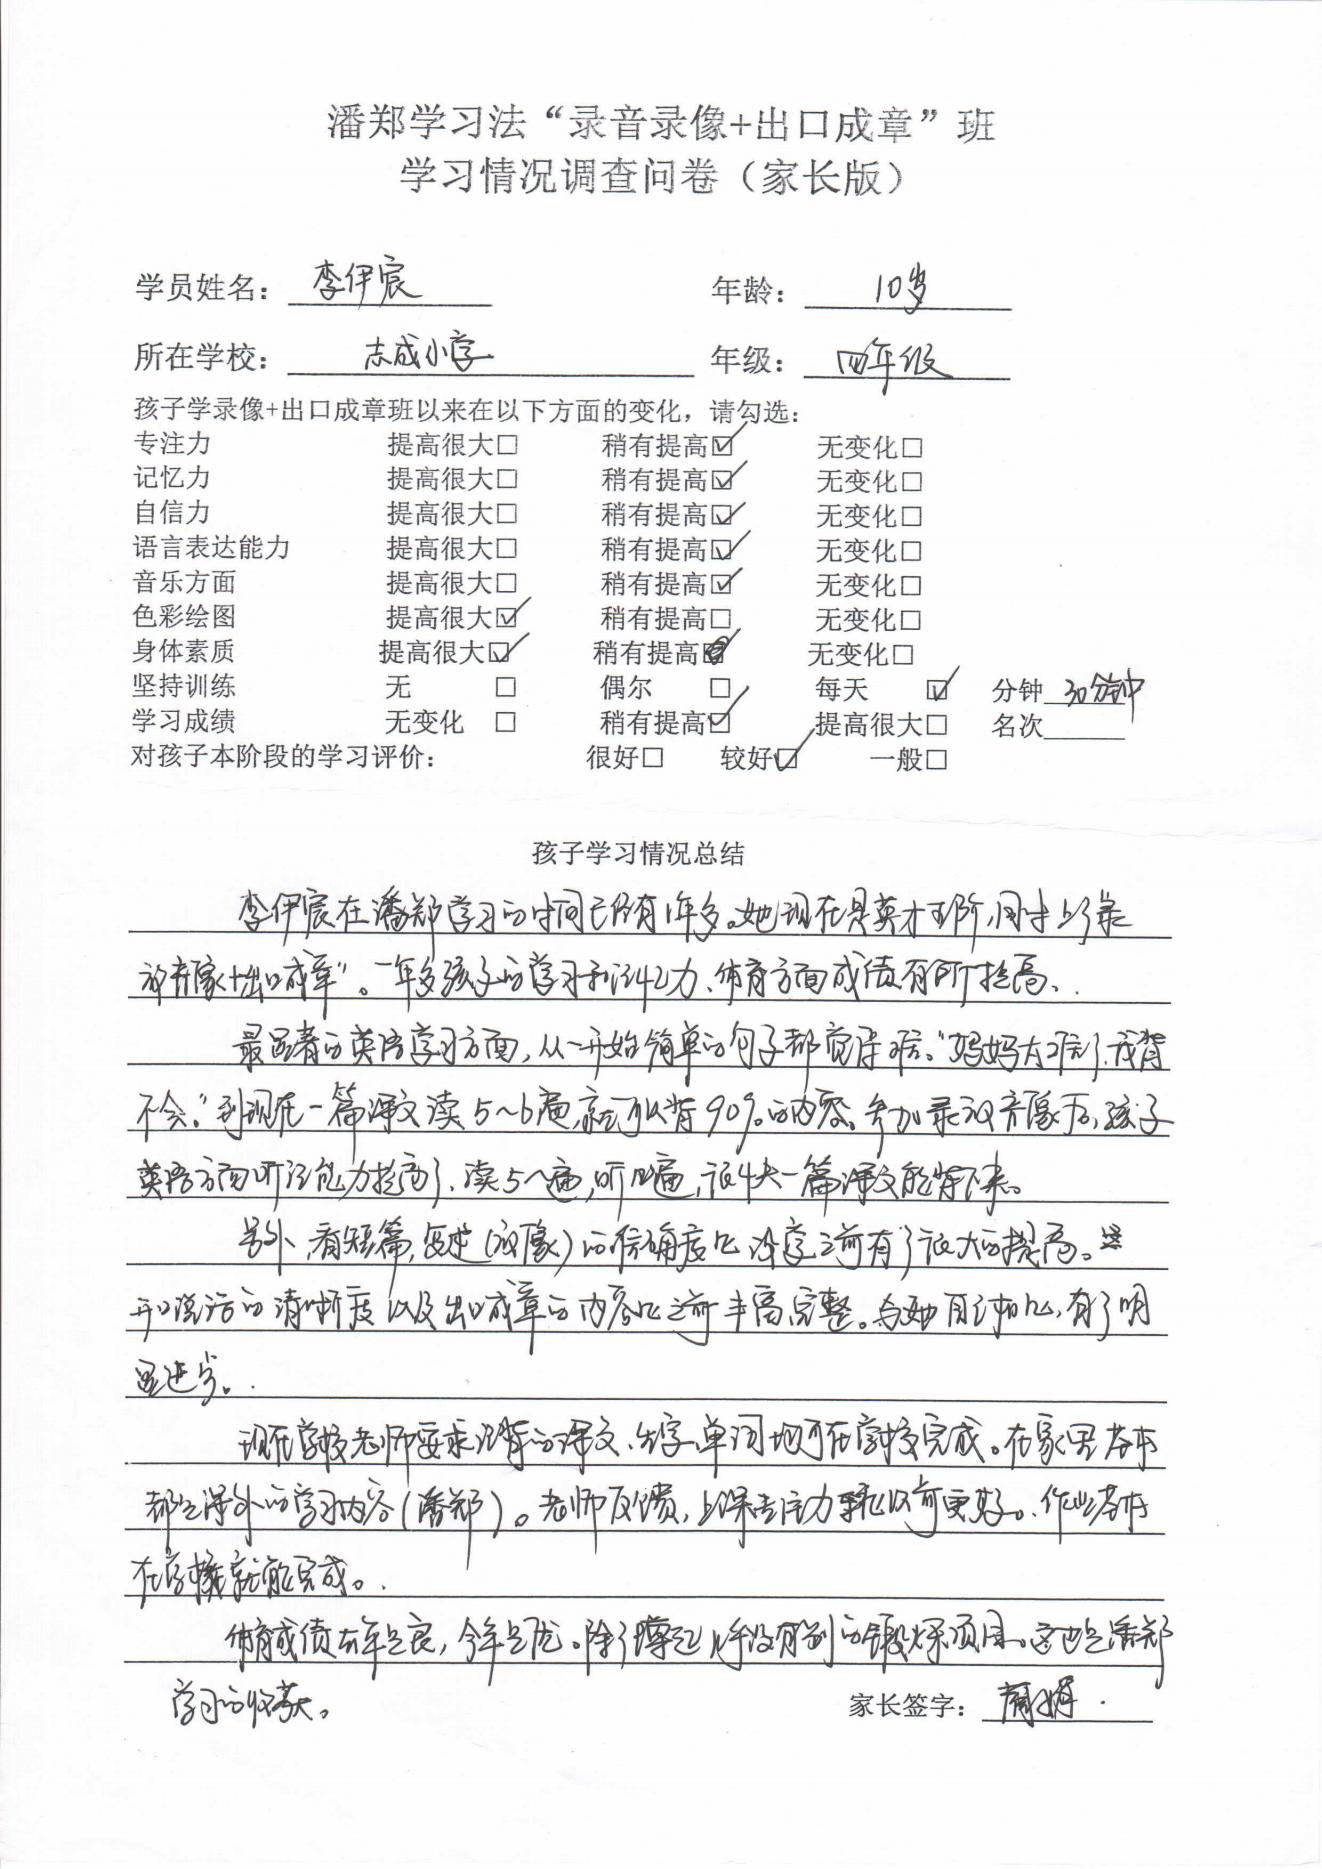 潘郑学习法“录音录像+出口成章”班
学习情况调查问卷（家长版）
学员姓名： 李伊宸 年龄： 10岁
所在学校： 志成小学 年级： 四年级
孩子学录像+出口成章班以来在以下方面的变化，请勾选：
专注力 提高很大□ 稍有提高☑ 无变化□
记忆力 提高很大□ 稍有提高☑ 无变化□
自信力 提高很大□ 稍有提高☑ 无变化□
语言表达能力 提高很大□ 稍有提高☑ 无变化□
音乐方面 提高很大□ 稍有提高☑ 无变化□
色彩绘图 提高很大☑ 稍有提高□ 无变化□
身体素质 提高很大☑ 稍有提高 无变化□
坚持训练 无 □ 偶尔 □ 每天 ☑ 分钟 30分钟
学习成绩 无变化 □ 稍有提高☑ 提高很大□ 名次
对孩子本阶段的学习评价： 很好□ 较好☑ 一般□
孩子学习情况总结
李伊宸在潘郑学习的时间已经有1年多。她现在是英才五阶，同时上了“录
放音像+出口成章”。一年多孩子的学习和记忆力、体育方面成绩有所提高、
最显著的英语学习方面，从一开始简单的句子都觉得难。“妈妈太难了，我背
不会。”到现在一篇课文读5~6遍，就可以背90%的内容。参加录放音像后，孩子
英语方面听说能力提高了，读5遍，听遍，一篇课文能背下来。
另外，看短篇，复述（放像）的准确度比没学之前有了很大的提高。
开口说话的清晰度以及出口成章的内容比之前丰富完整。与她自己相比，有了明
显进步。
现在学校老师要求背的课文、生字、单词均可在学校完成。在家里基本
都是课外的学习内容（潘郑）。老师反馈，上课专注力比以前更好。作业基本
在学校就能完成。
体育成绩去年是良，今年是优。除了蹲起几乎没有别的锻炼项目。这也是潘郑
学习的收获。 家长签字：